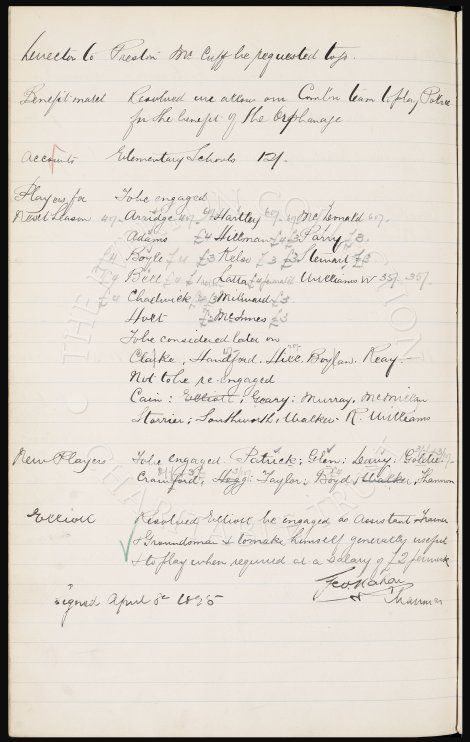 Director to Preston Mr Cuff be requested to go.
Benefit match Resolved we allow our Comb'n team to play Police
for the benefit of the Orphanage
Accounts Elementary Schools 12/-
Players for To be engaged
Next Season Arridge Hartley McDonald
Adams £4 Hillman £3 Parry £3
£4 Boyle £4 £3 Kelso £3 £3 Stewart £3
Bell £4 Latta £4 Williams W 35/- 35/-
£4 Chadwick £3 Milward £3
Holt £3 McInnes £3
To be considered later on
Clarke, Handford. Hill. Boylan. Reay.
Not to be re-engaged
Cain: Elliott; Geary; Murray, McMillan
Storrier; Southworth; Walker. R. Williams
New Players To be engaged Patrick; Glen; Goldie
Crawford; Hogg; Taylor; Boyd; Walker, Shannon
Elliott Resolved Elliott be engaged as Assistant Trainer
& Groundsman & to make himself generally useful
& to play when required at a salary of £2 per week
Geo Mahon
Signed April 8th 1895 Chairman